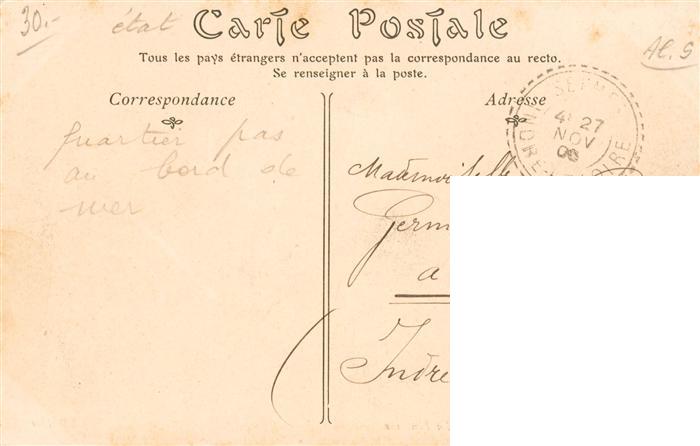 30.-
état
Al. S
Carte Postale
Tous les pays étrangers n'acceptent pas la correspondance au recto.
Se renseigner à la poste.
Correspondance
Adresse
4 27
NOV
quartier pas
au bord de
mer
Mademoiselle
Germ
a
Indre